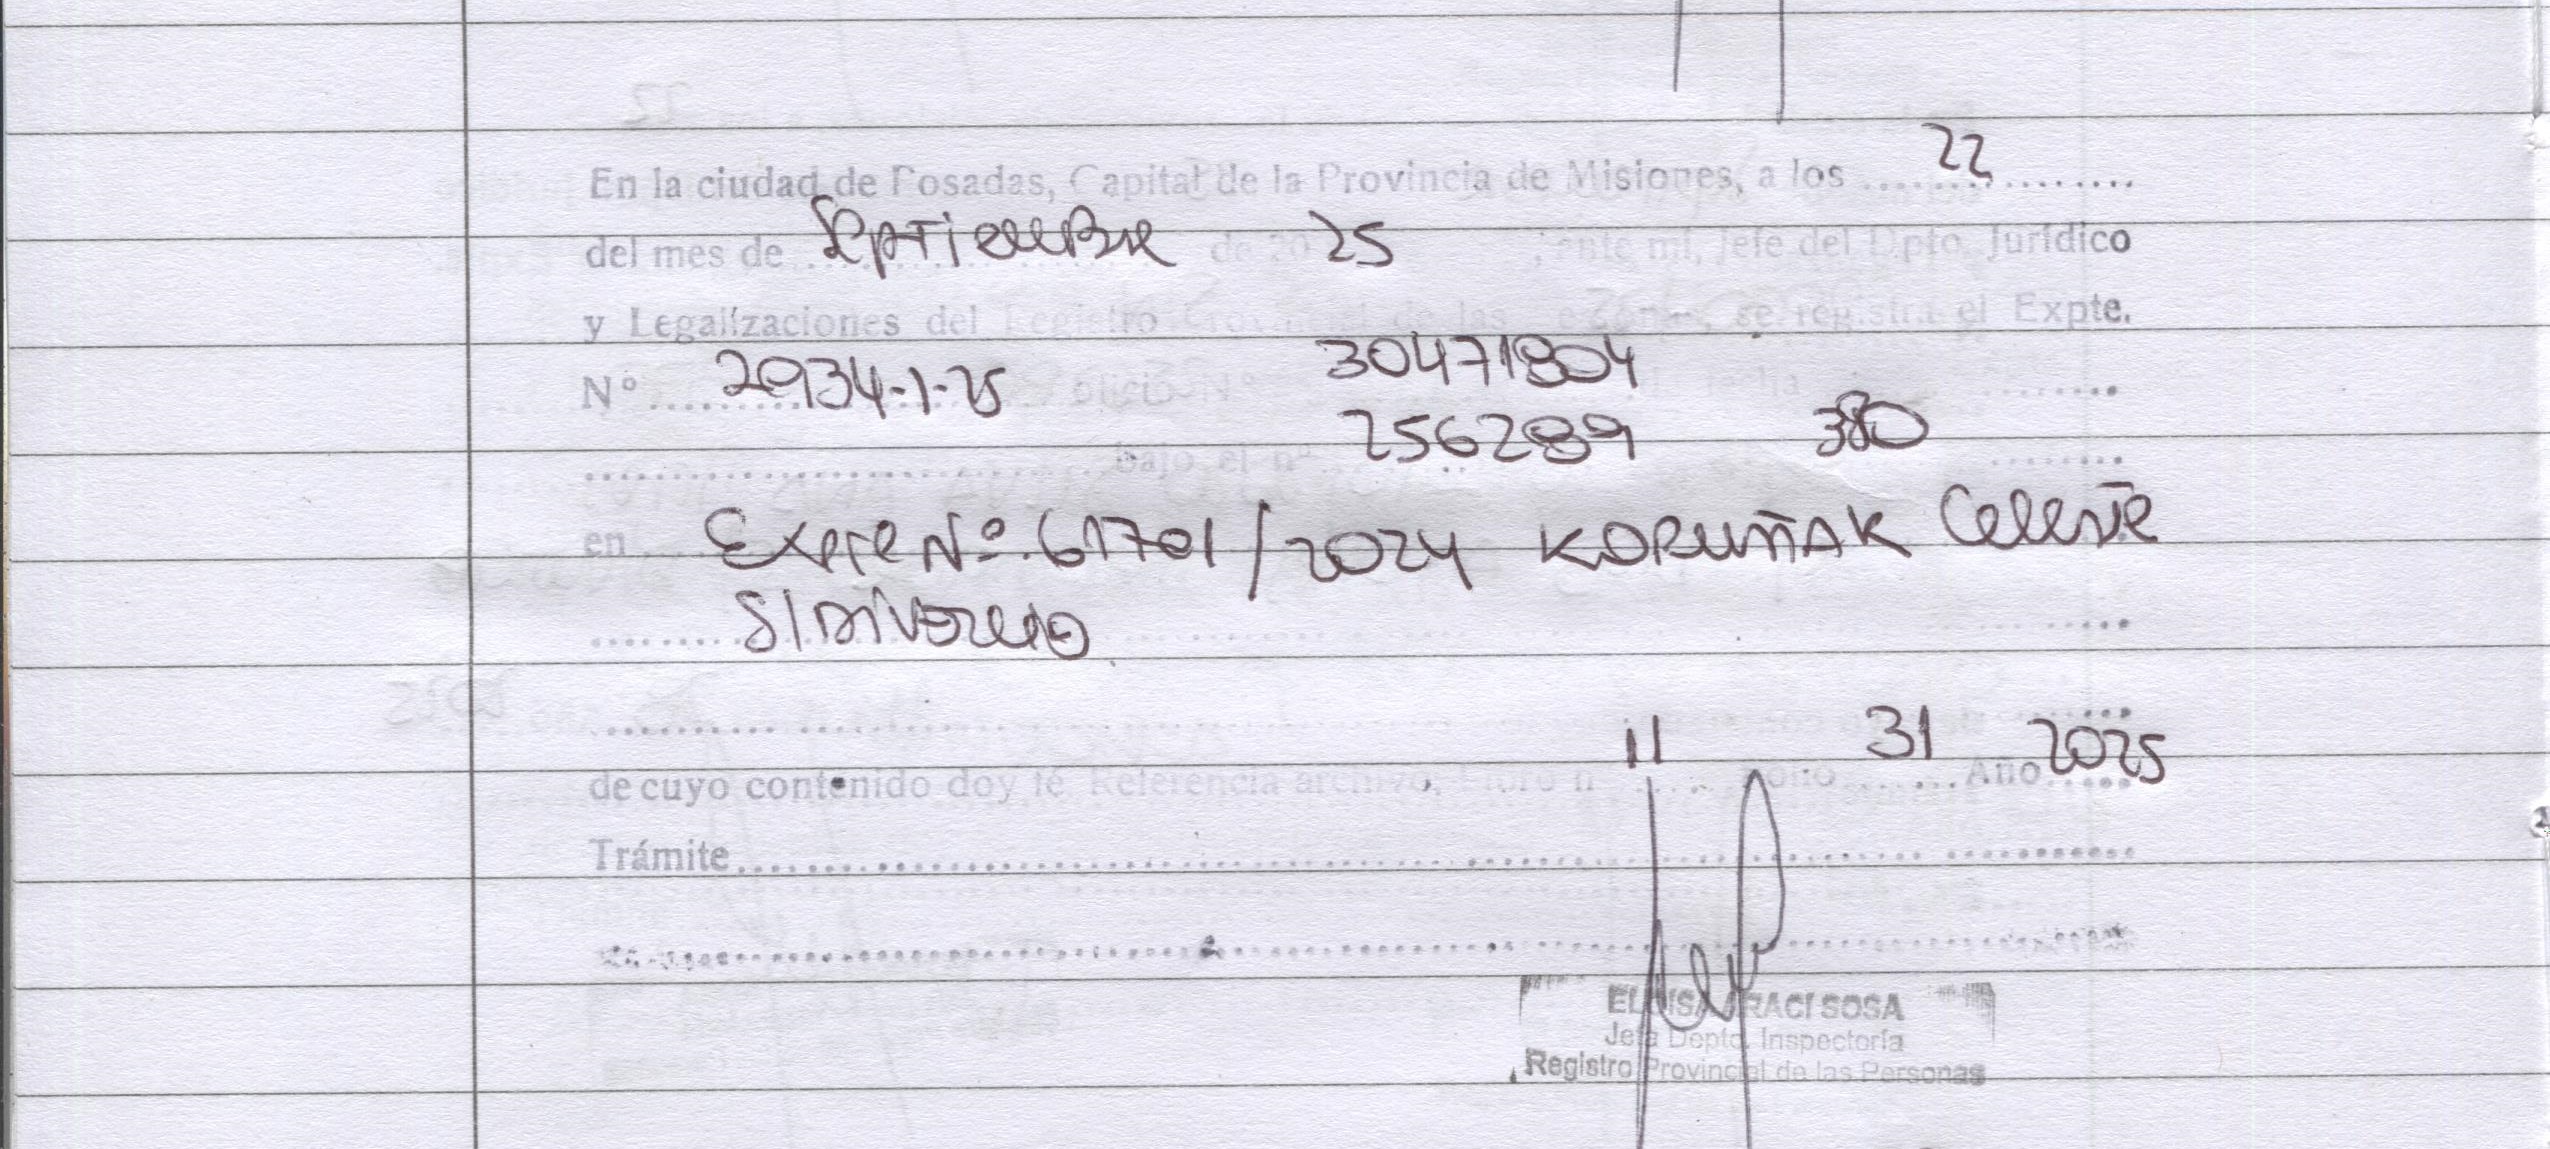 En la ciudad de Posadas, Capital de la Provincia de Misiones, a los 22
del mes de Septiembre de 20 25, ante mí, Jefe del Dpto. Jurídico
y Legalizaciones del Registro Provincial de las Personas, se registra el Expte.
Nº 2934-1-25 oficio Nº 30471804 fecha
bajo el nº 256289 380
en Expte Nº 61701/2024 KORUÑAK Celeste
S/DIVORCIO
de cuyo contenido doy fé Referencia archivo, 11 Folio 31 Año 2025
Trámite
ELOISA ARACI SOSA
Jefa Depto. Inspectoría
Registro Provincial de las Personas